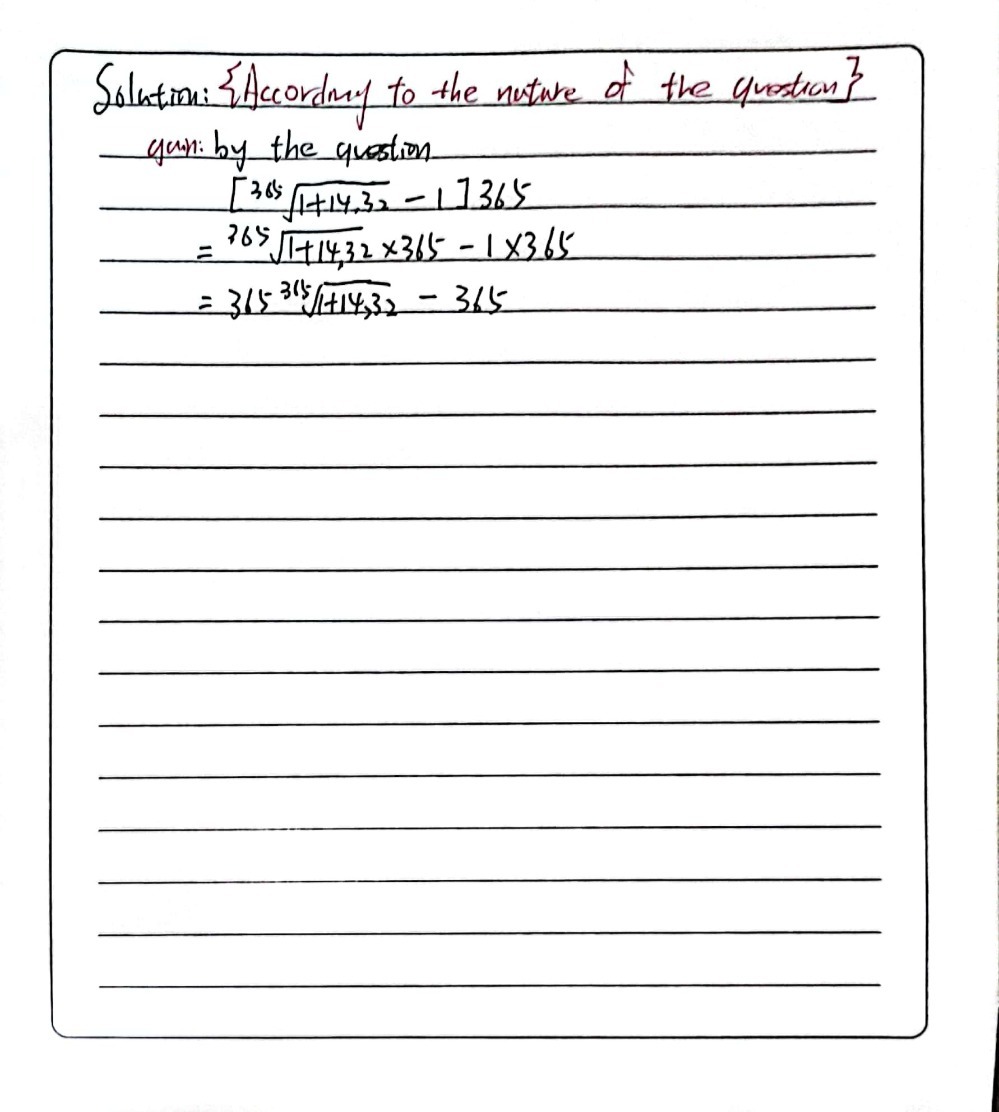 Solution: {According to the nature of the question}
given: by the question
[³⁶⁵√1+14,32 - 1] 365
= ³⁶⁵√1+14,32 × 365 - 1 × 365
= 365 ³⁶⁵√1+14,32 - 365